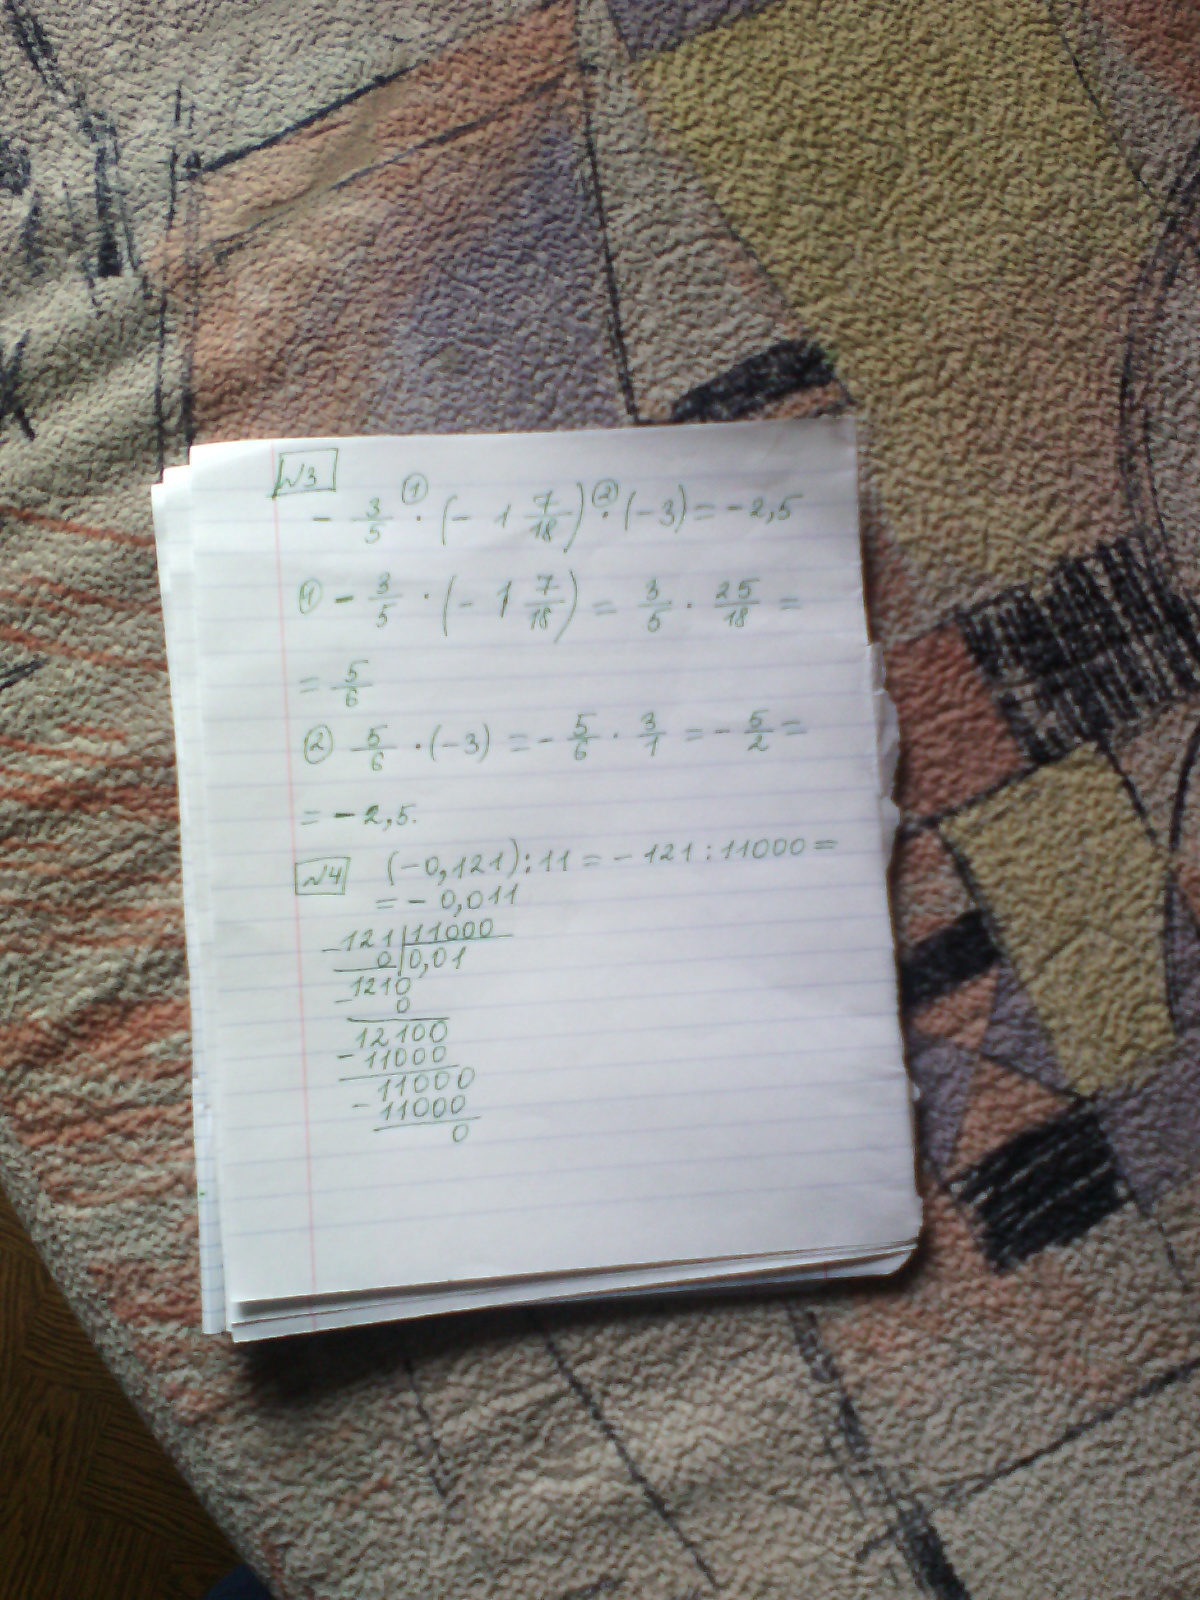 №3
- 3/5 ·① (- 1 7/18) ·② (-3) = -2,5
① - 3/5 · (- 1 7/18) = 3/5 · 25/18 =
= 5/6
② 5/6 · (-3) = - 5/6 · 3/1 = - 5/2 =
= - 2,5.
№4 (-0,121) : 11 = - 121 : 11000 =
= - 0,011
- 121 | 11000
0 | 0,01
1210
- 0
12100
- 11000
11000
- 11000
0